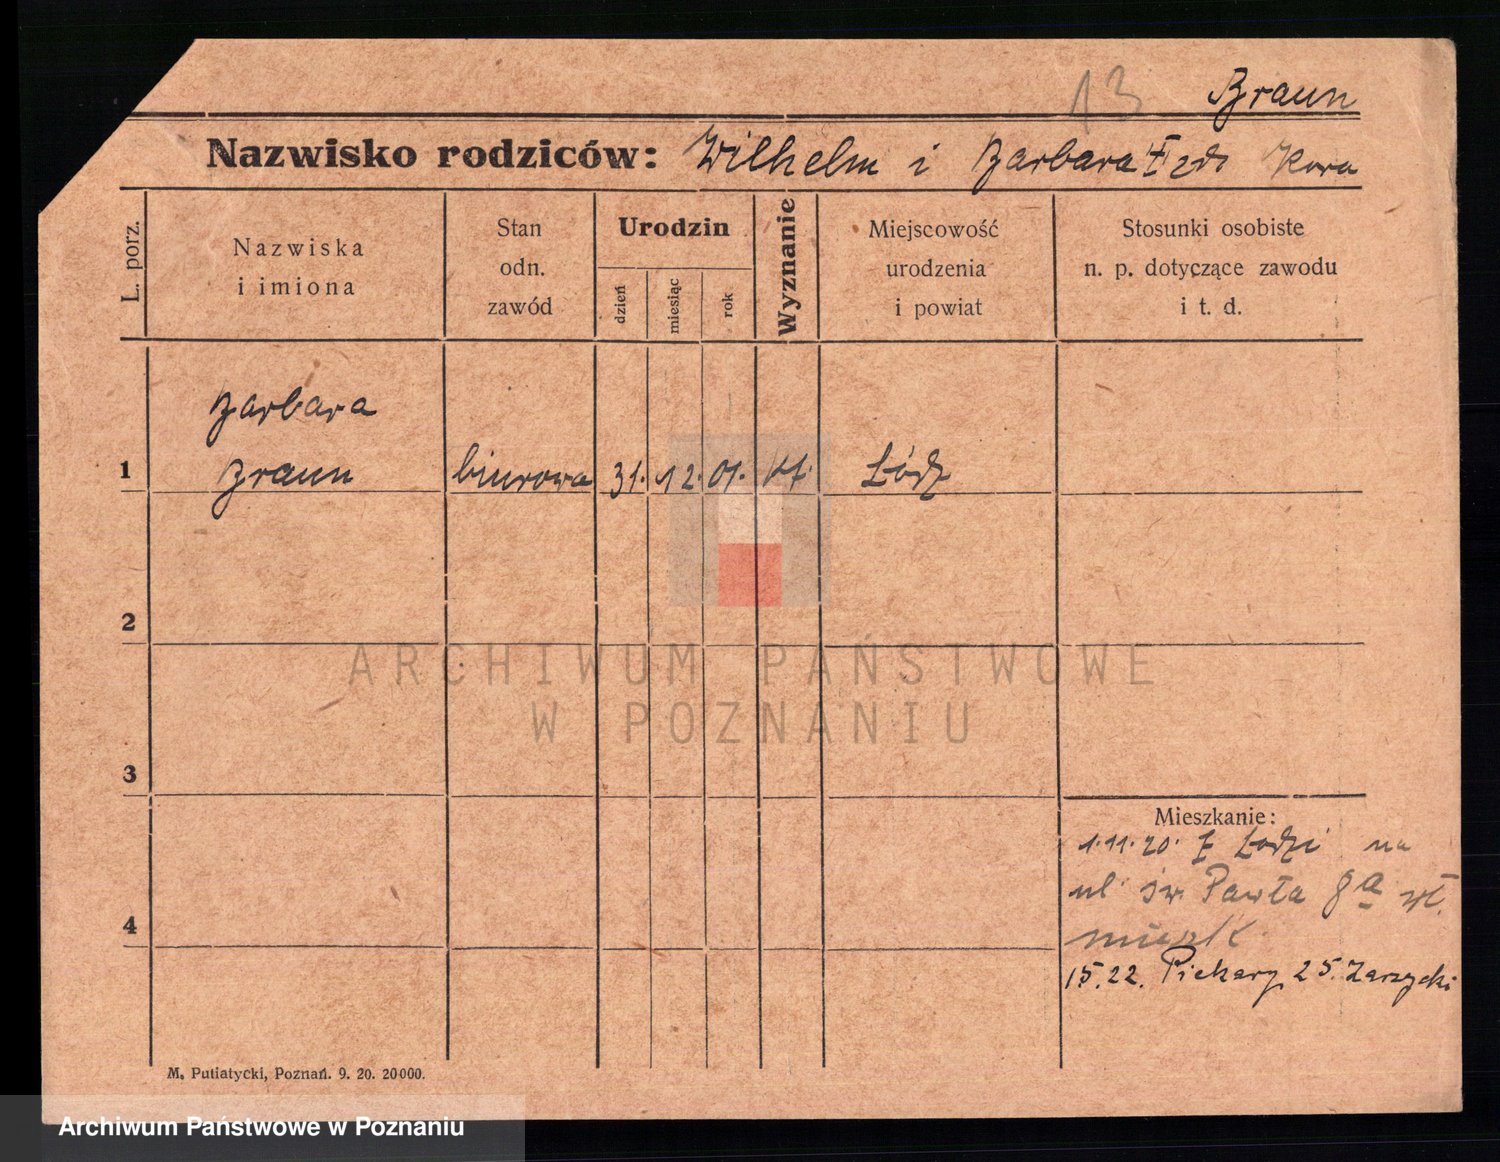 13 Braun
Nazwisko rodziców: Wilhelm i Barbara
L. porz.
Nazwiska
i imiona
Stan
odn.
zawód
Urodzin
dzień
miesiąc
rok
Wyznanie
Miejscowość
urodzenia
i powiat
Stosunki osobiste
n. p. dotyczące zawodu
i t. d.
Barbara
1 Braun biurowa 31. 12. 01. kt. Łódź
2
ARCHIWUM PAŃSTWOWE
W POZNANIU
3
Mieszkanie:
1.11.20. z Łodzi na
ul. św. Pawła 8a
4
15.22. Piekary 25. Zarzycki
M. Putiatycki, Poznań. 9. 20. 20000.
Archiwum Państwowe w Poznaniu